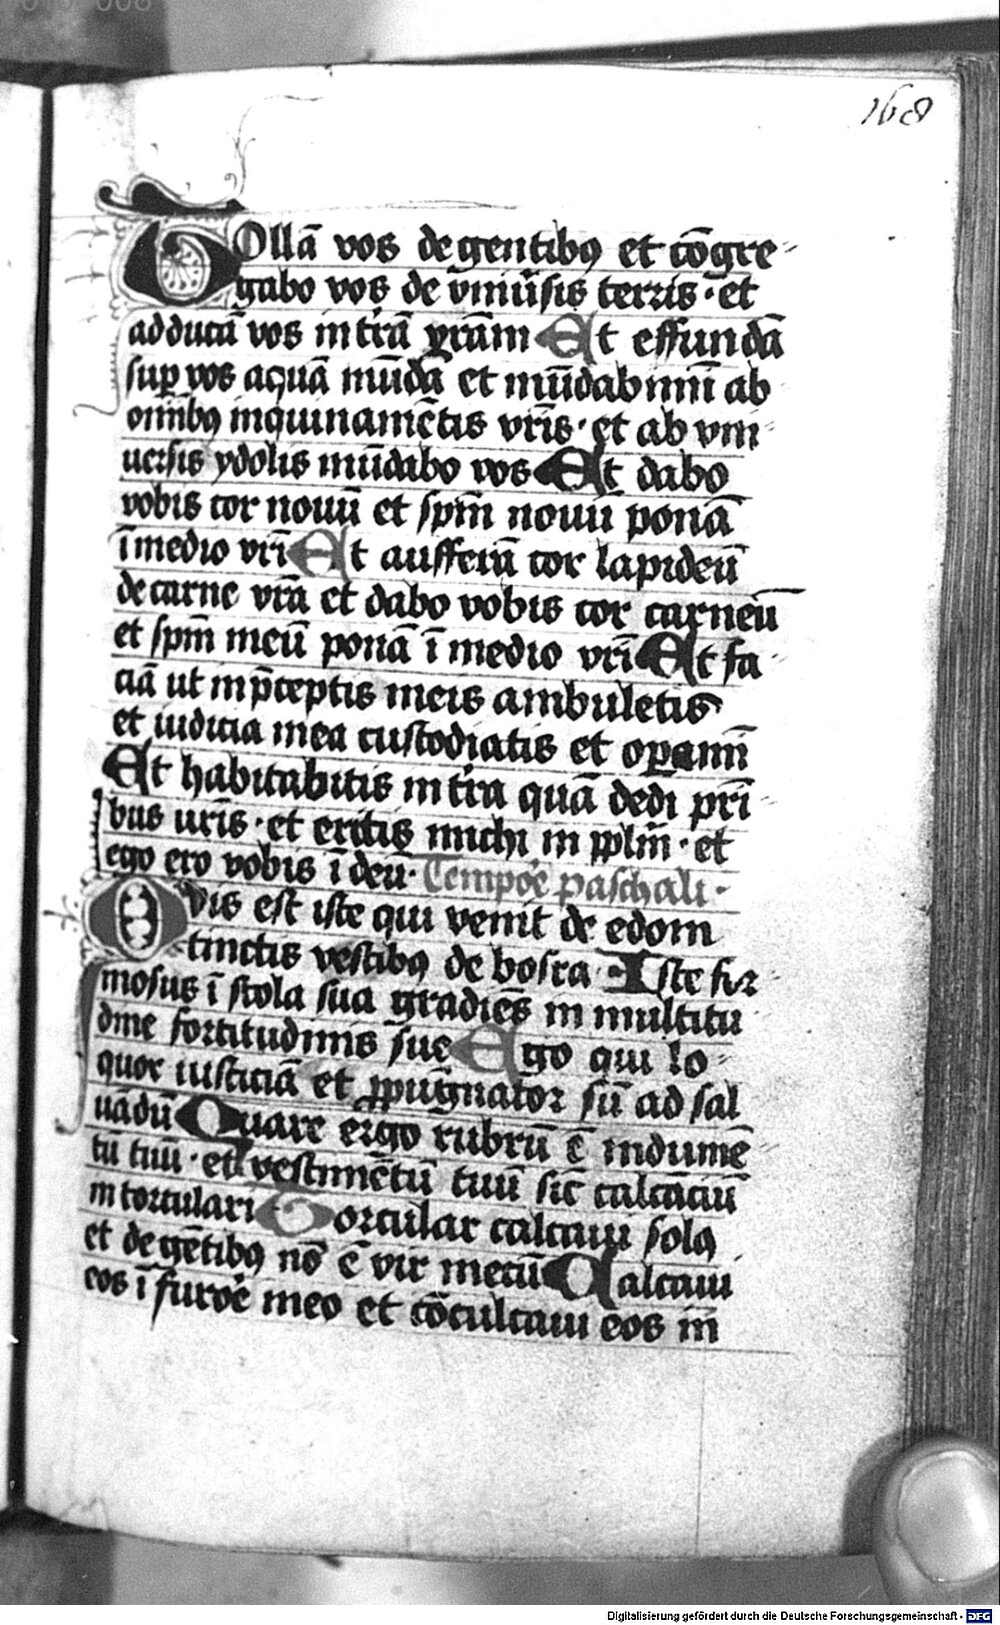 168
Tollā vos de gentibꝰ et cōgre-
gabo vos de vniūsis terris · et
adducā vos in t̄rā vr̄am Et effundā
suꝑ vos aquā mūdā et mūdabimī ab
om̄ibꝰ inquinamētis vr̄is · et ab vni-
uersis ydolis mūdabo vos Et dabo
vobis cor nouū et sp̄m nouū ponā
ī medio vr̄i Et aufferā cor lapideū
de carne vr̄a et dabo vobis cor carneū
et sp̄m meū ponā ī medio vr̄i Et fa-
ciā ut in p̄ceptis meis ambuletis
et iudicia mea custodiatis et oꝑamī
Et habitabitis in t̄ra quā dedi pr̄i-
bus vr̄is · et eritis michi in ppl̄m · et
ego ero vobis ī deū · Tempoꝛe paschali ·
Quis est iste qui venit de edom
tinctis vestibꝰ de bosra · Iste for-
mosus ī stola sua gradiēs in multitu
dine fortitudinis sue Ego qui lo-
quor iusticiā et ꝓpugnator sū ad sal
uādū Quare ergo rubrū ē indumē-
tū tuū · et vestimētū tuū sic̄ calcāciū
in torculari Torcular calcaui solꝰ
et de gētibꝰ nō ē vir mecū Calcaui
eos ī furoꝛe meo et cōculcaui eos in
Digitalisierung gefördert durch die Deutsche Forschungsgemeinschaft - DFG